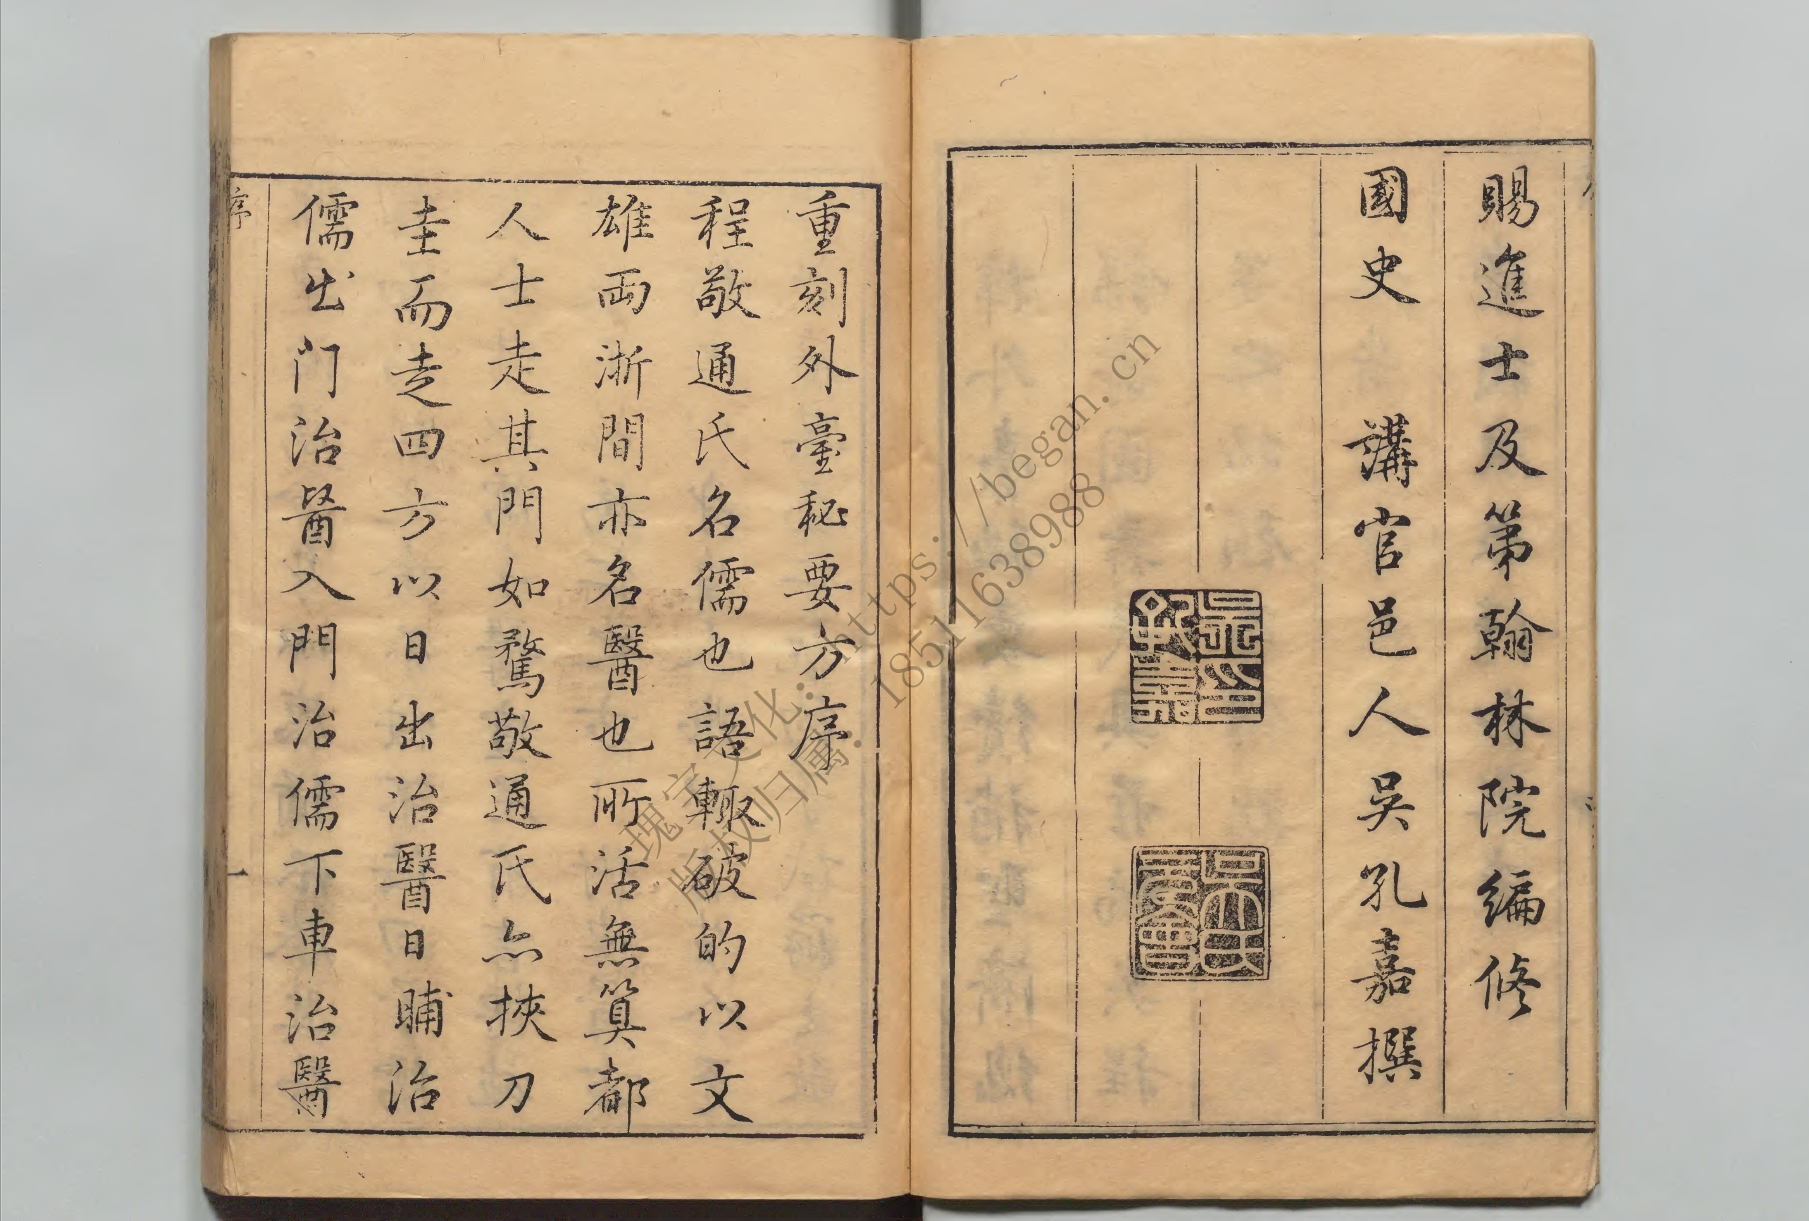 賜進士及第翰林院編修
國史 講官邑人吳孔嘉撰
重刻外臺秘要方序
程敬通氏名儒也語輙破的以文
雄両浙間亦名醫也所活無算都
人士走其門如騖敬通氏亦挾刀
圭而走四方以日出治醫日晡治
儒出門治醫入門治儒下車治醫
序
一
文化：https://began.cn
版权归属：18511638988